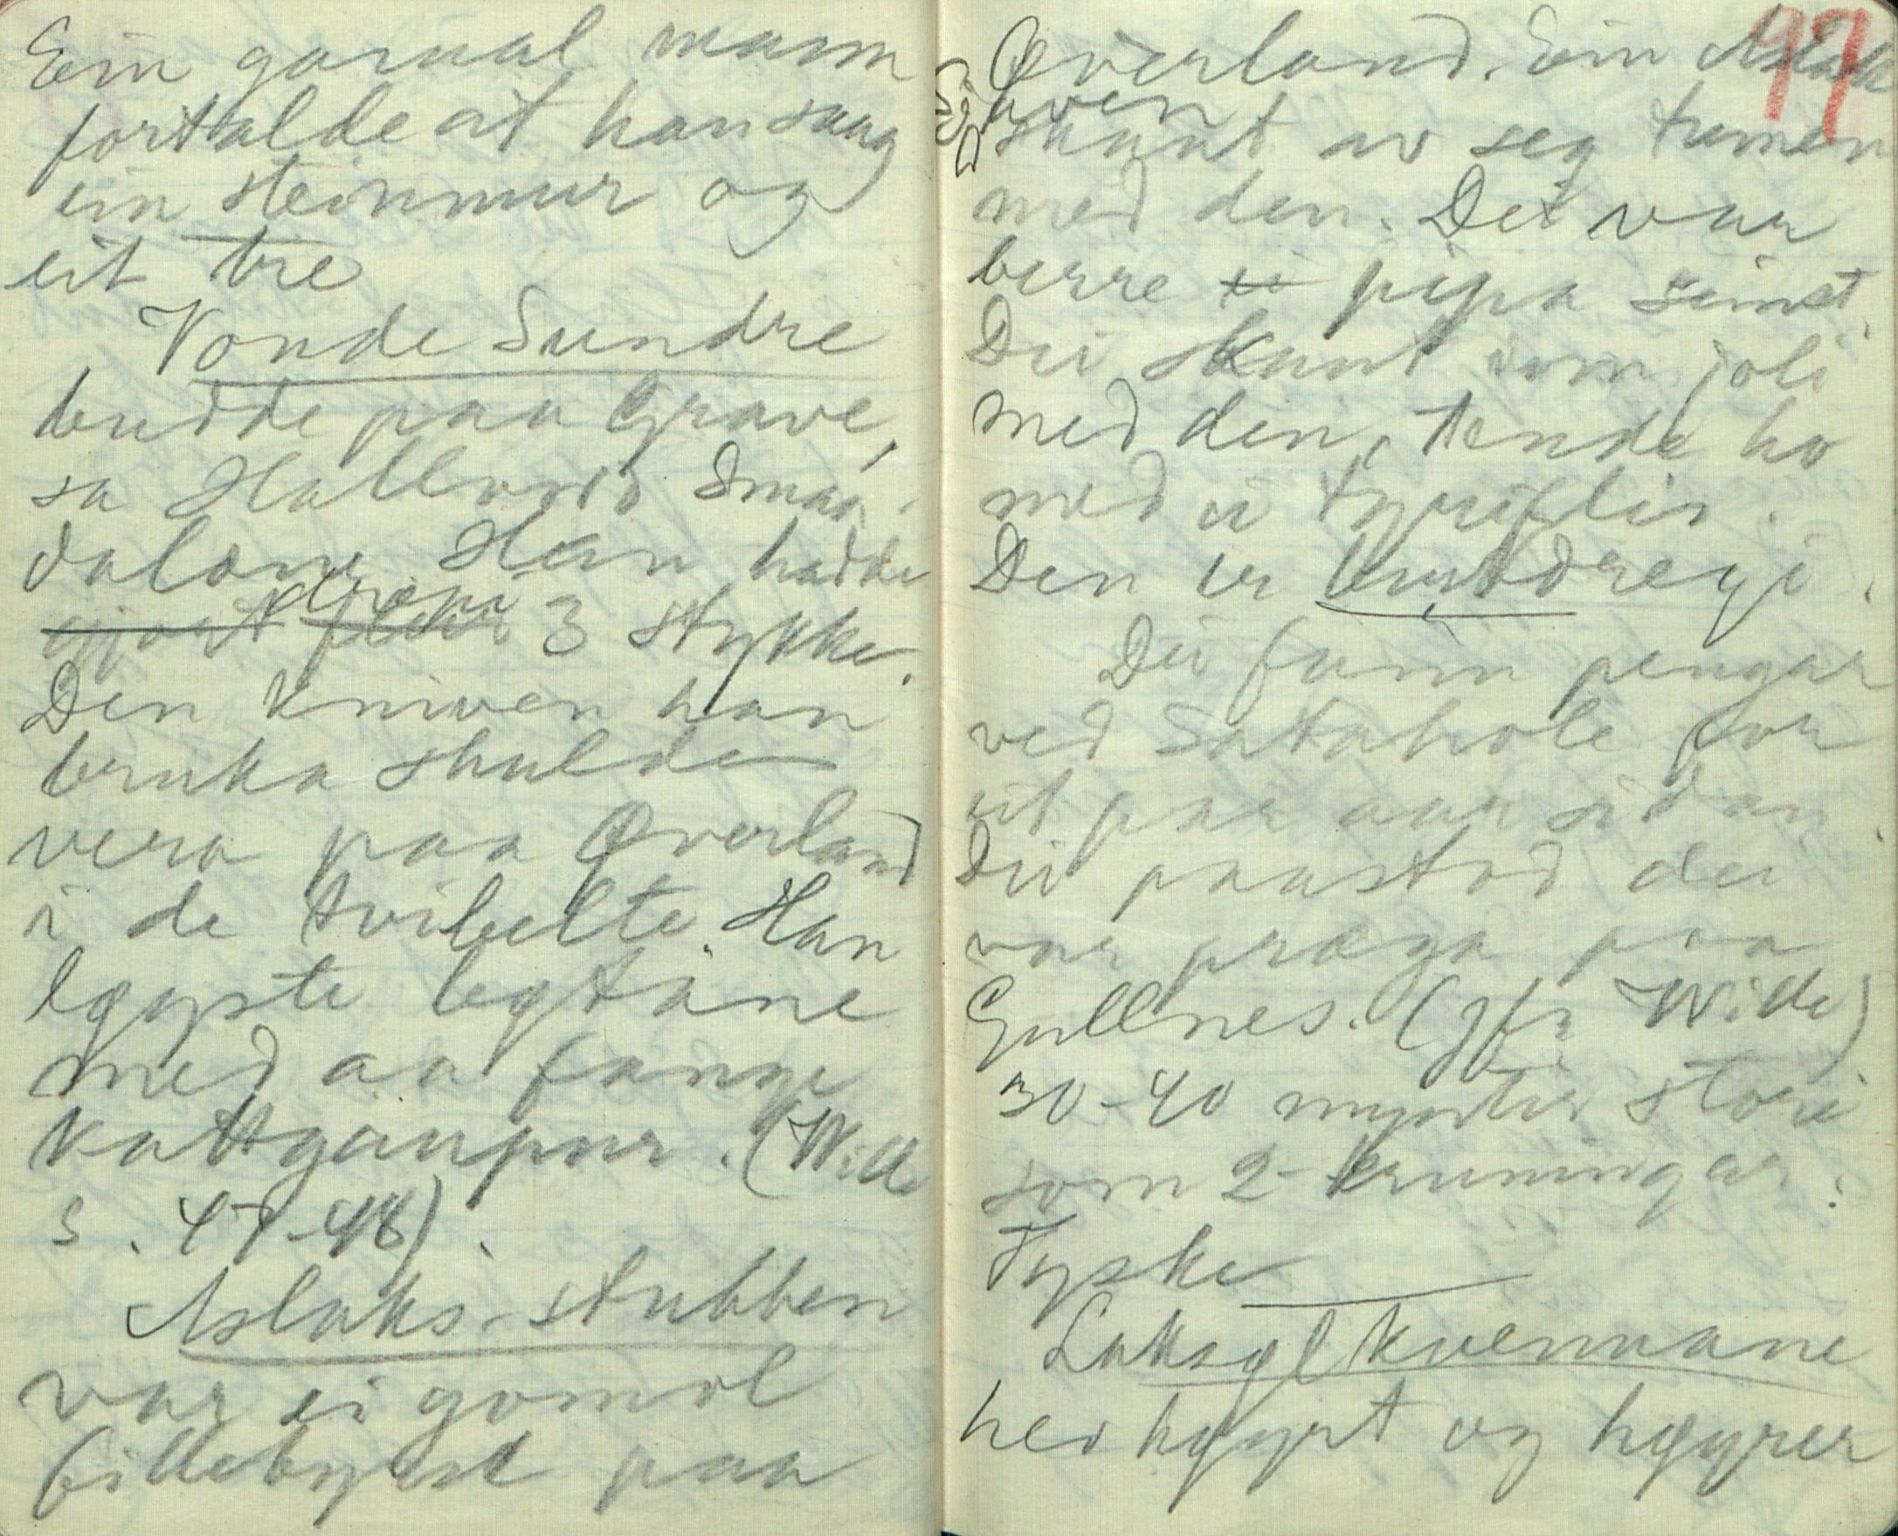 Ein gamal mann
fortalde at han saag
ein steinmur og
eit tre
Vonde Sundre
budde paa Grave,
sa Hallvord Smaa-
dalane. Han hadde
gjort drepi 3 stykke.
Den kniven han
bruka skulde
vera paa Øverland
i de tvibelte. Han
løyste legtäne
med aa fange
kattgaupur. (Wille
s. 47-48).
Aslaks-stubben
var ei gomol
fillebyrse paa
Øverland. Ein Aslak
skaut av seg tumen
med den. Det var
berre ei pipa seinst.
Dei skaut som joli
med den, tende ho
med ei tyriflis.
Den er burtdregi.
Dei funn pengar
ved Satahole for
eit par aar sidan.
Dei paastod dei
var præga paa
Gullnes. (jfr Wille)
30-40 mynter store
som 2-kruningar.
Tyske
Laksøl kvennane
hev høyrt og høyrer